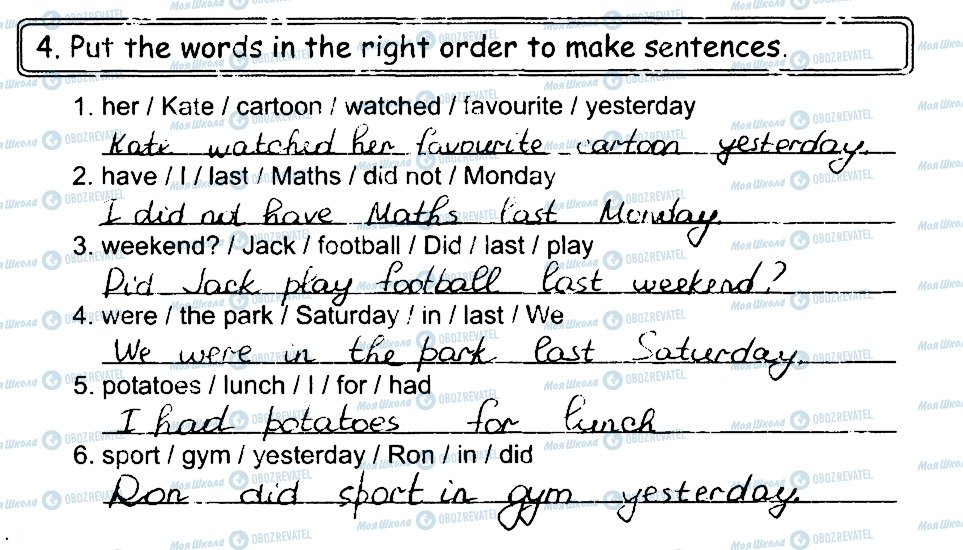 4. Put the words in the right order to make sentences.
1. her / Kate / cartoon / watched / favourite / yesterday
Kate watched her favourite cartoon yesterday.
2. have / I / last / Maths / did not / Monday
I did not have Maths last Monday.
3. weekend? / Jack / football / Did / last / play
Did Jack play football last weekend?
4. were / the park / Saturday / in / last / We
We were in the park last Saturday.
5. potatoes / lunch / I / for / had
I had potatoes for lunch
6. sport / gym / yesterday / Ron / in / did
Ron did sport in gym yesterday.
МояШкола OBOZREVATEL